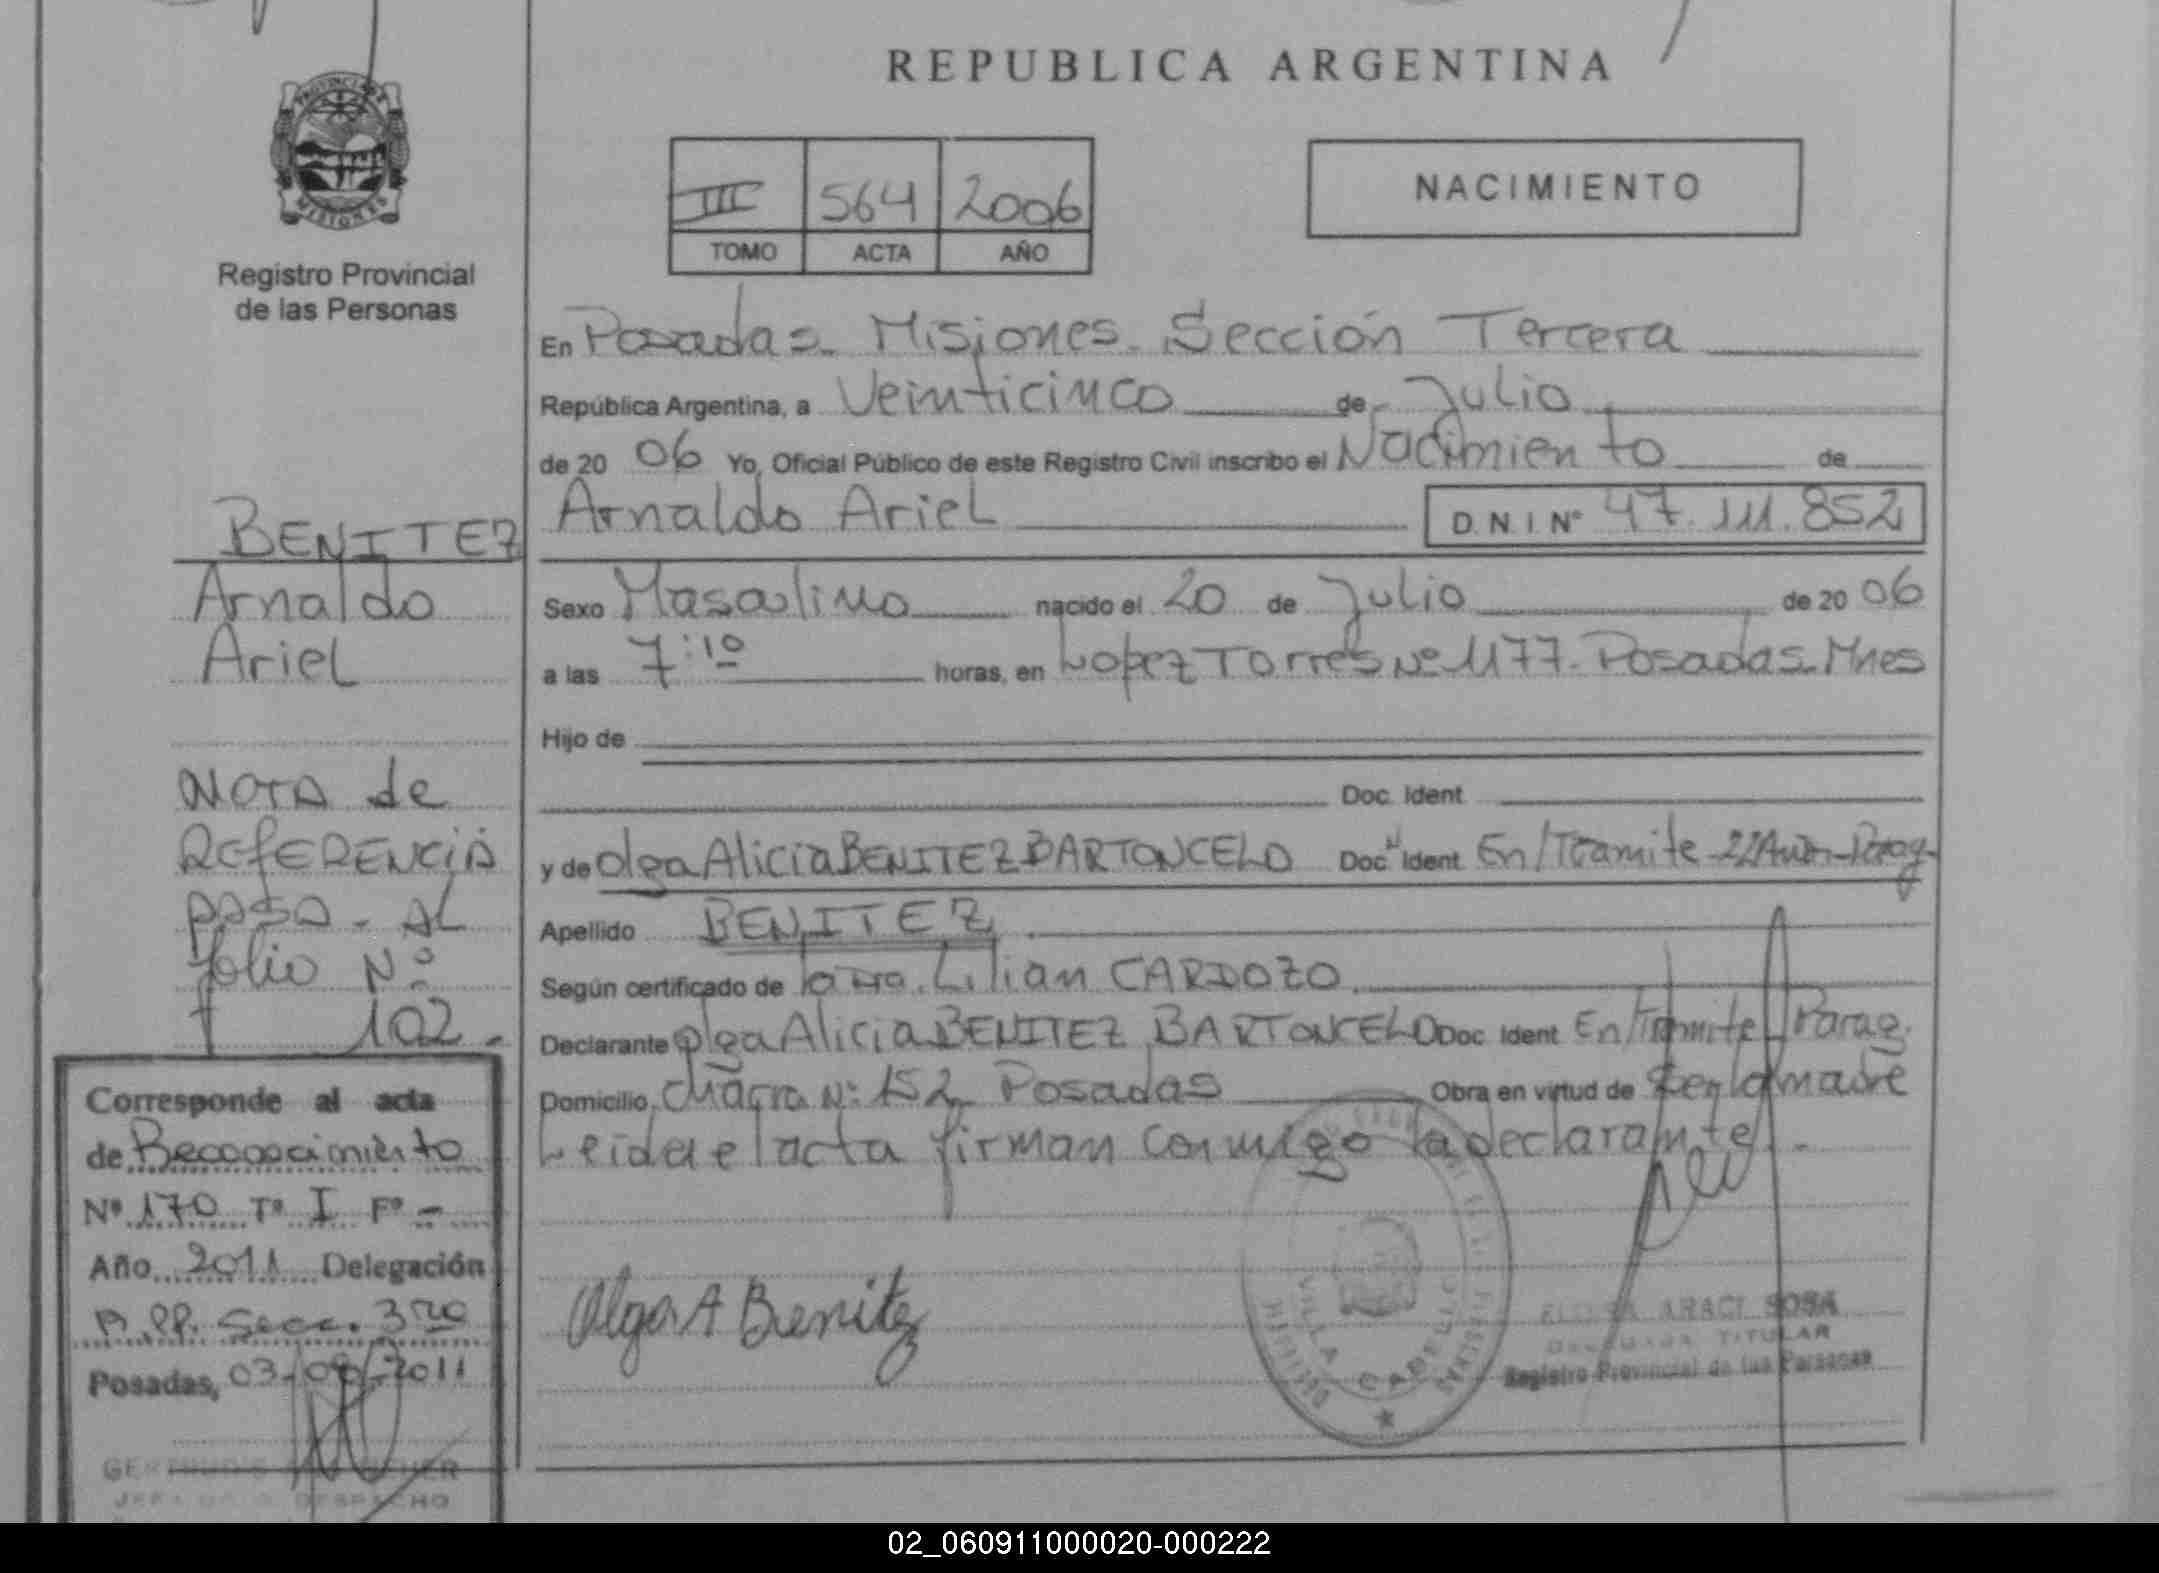 REPUBLICA ARGENTINA
PROVINCIA DE
MISIONES
Registro Provincial
de las Personas
III 564 2006
TOMO ACTA AÑO
NACIMIENTO
En Posadas. Misiones. Sección Tercera
República Argentina, a Veinticinco de Julio
de 20 06 Yo, Oficial Público de este Registro Civil inscribo el Nacimiento de
Arnaldo Ariel D.N.I. Nº 47.111.852
Sexo Masculino nacido el 20 de Julio de 20 06
a las 7:10 horas, en Lopez Torres Nº 1177. Posadas Mnes
Hijo de
Doc. Ident
y de Olga Alicia BENITEZ BARTONCELO Doc Ident En/Tramite 22 Parag-
Apellido BENITEZ
Según certificado de la Dra. Lilian CARDOZO.
Declarante Olga Alicia BENITEZ BARTONCELO Doc Ident En/Tramite Parag.
Domicilio Chacra Nº 152 Posadas Obra en virtud de Ser la madre
Leida el acta firman conmigo la declarante.-
Olga A Benitez
VILLA CABELLO
ARACI SOSA
TITULAR
Registro Provincial de las Personas
BENITEZ
Arnaldo
Ariel
NOTA de
REFERENCIA
PASA - AL
folio Nº
102.
Corresponde al acta
de Reconocimiento
Nº 170 Tº I Fº -
Año 2011 Delegación
Secc. 3ra
Posadas, 03-08-2011
DESPACHO
02_060911000020-000222